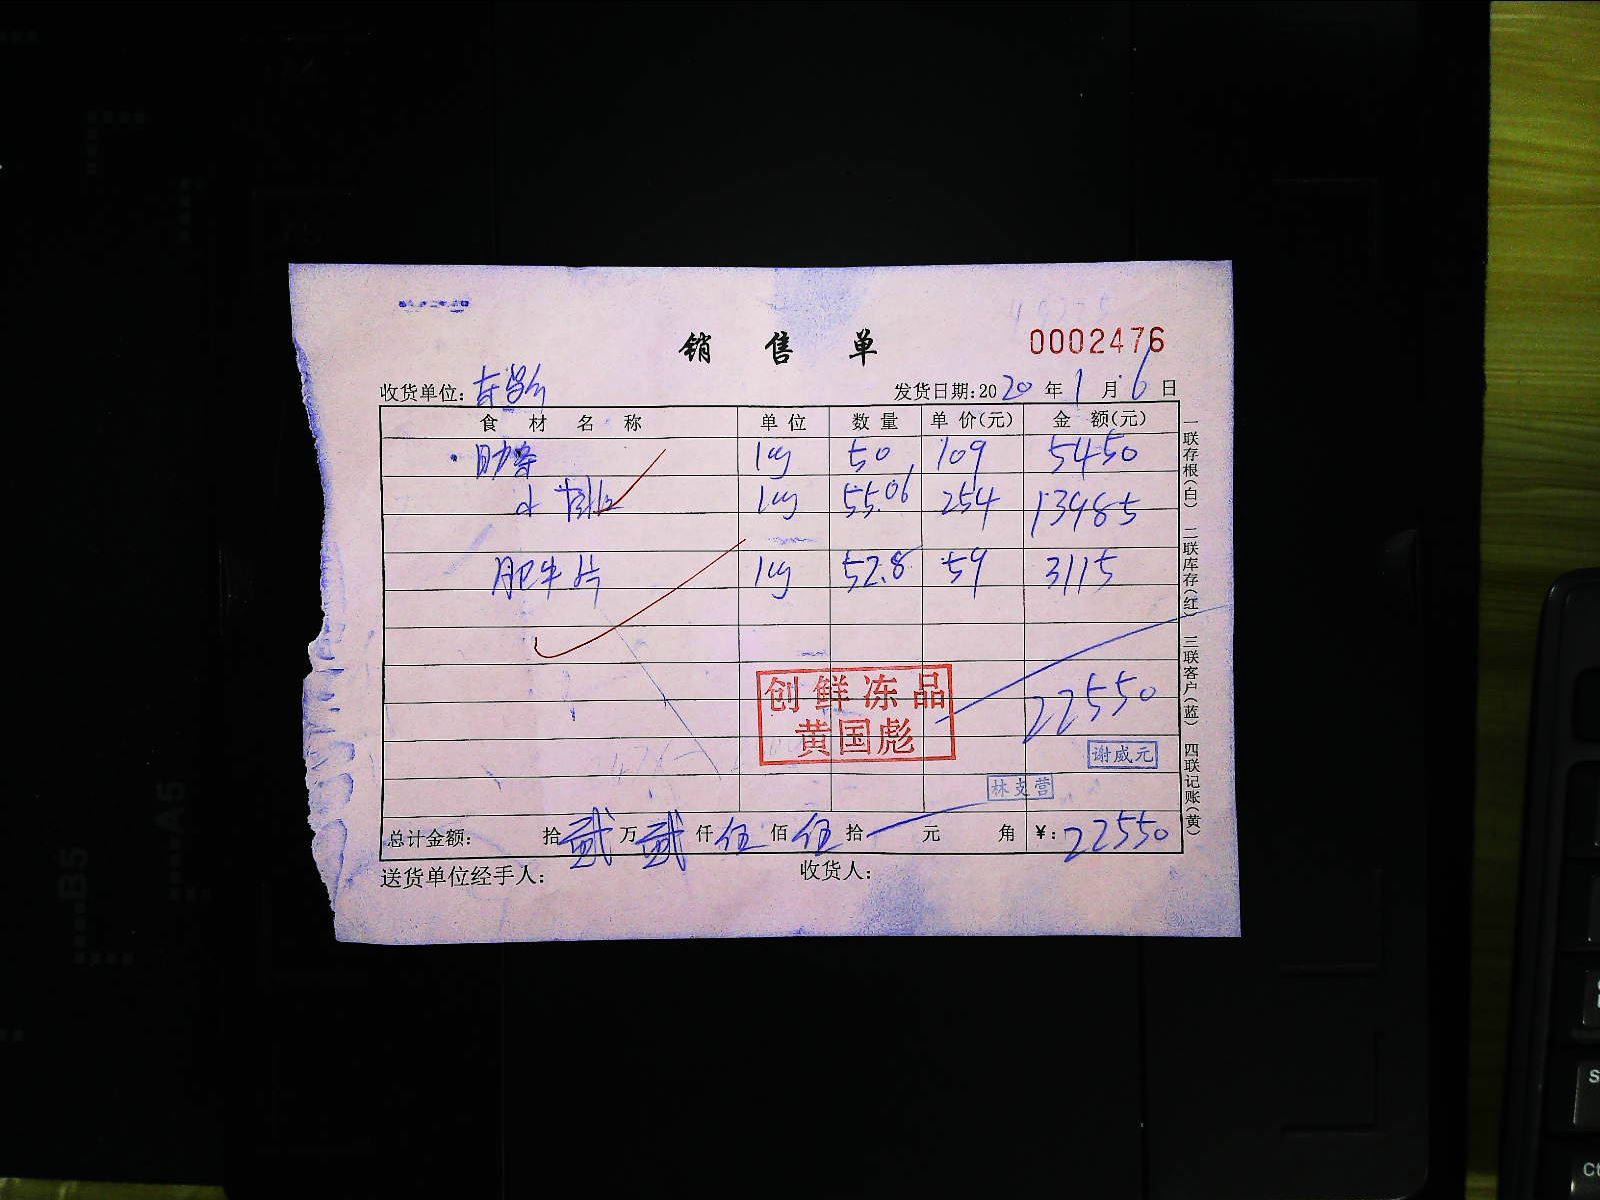 销 售 单
0002476
收货单位:
发货日期:2020年1月6日
食 材 名 称 单 位 数 量 单 价(元) 金 额(元)
1kg 50 109 5450
小排 1kg 55.06 254 13985
肥牛片 1kg 52.8 59 3115
22550
创鲜冻品
黄国彪
谢威元
林支营
总计金额: 拾贰万贰仟伍佰伍拾 元 角 ¥:22550
送货单位经手人: 收货人:
一联存根(白) 二联库存(红) 三联客户(蓝) 四联记账(黄)